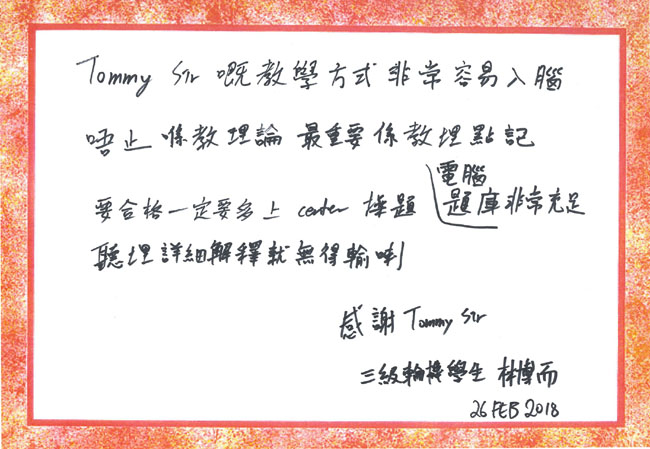 Tommy Sir 嘅教學方式非常容易入腦
唔止係教理論 最重要係教埋點記
要合格一定要多上 center 操題
電腦
題庫非常充足
聽埋詳細解釋就無得輸喇
感謝 Tommy Sir
三級輪機學生 林博而
26 FEB 2018